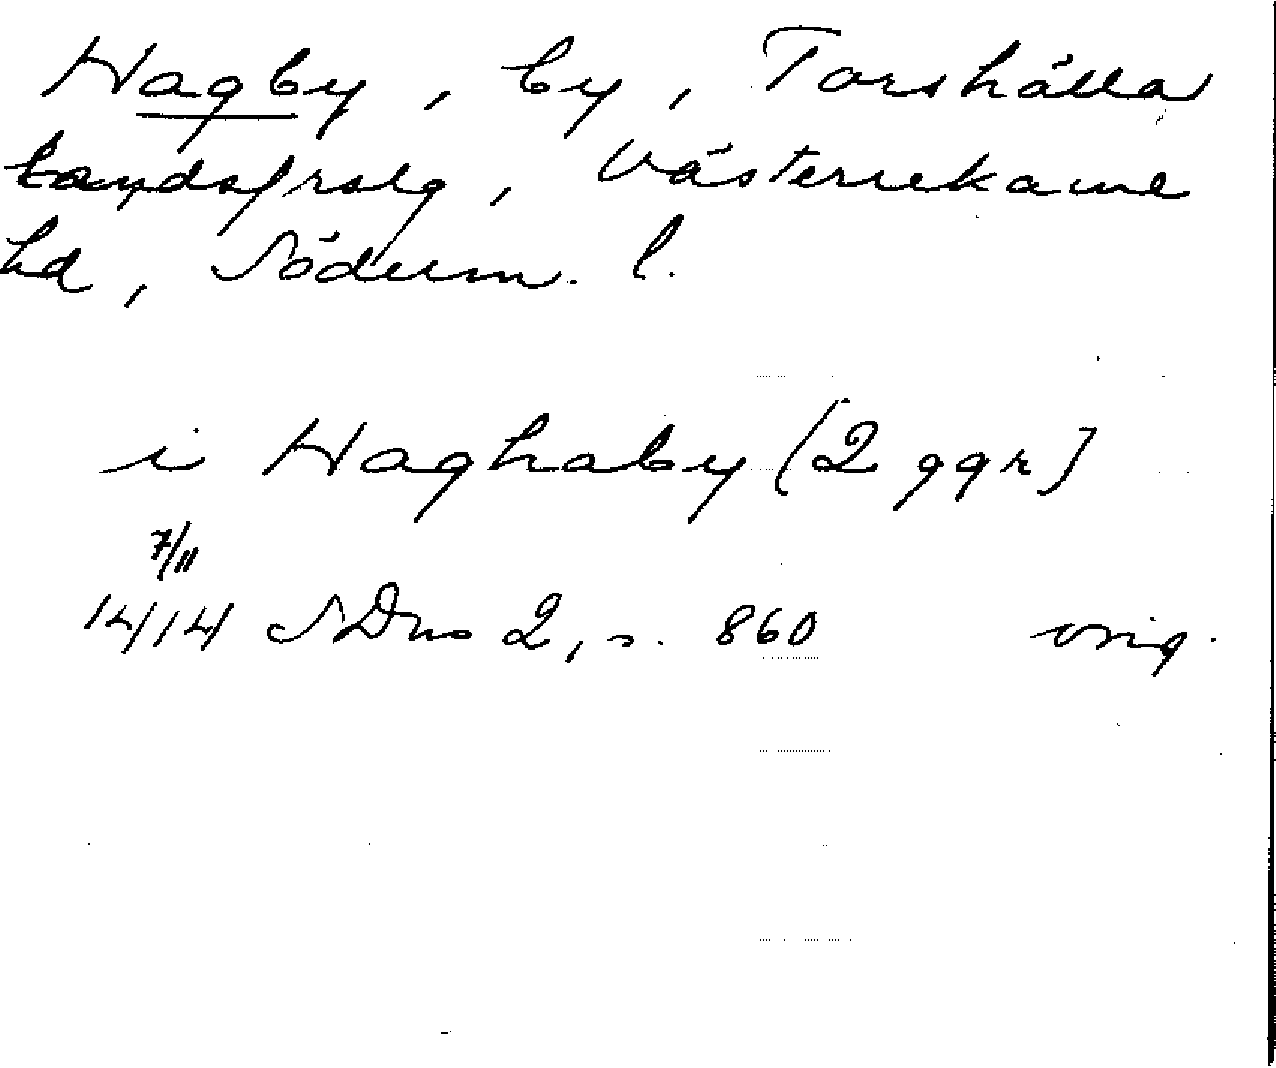 Hagby, by, Torshälla
landsfrslg, Västerrekarne
hd, Söderm. l.
i Haghaby (2 ggr)
7/11
1414 SDns 2, s. 860 orig.